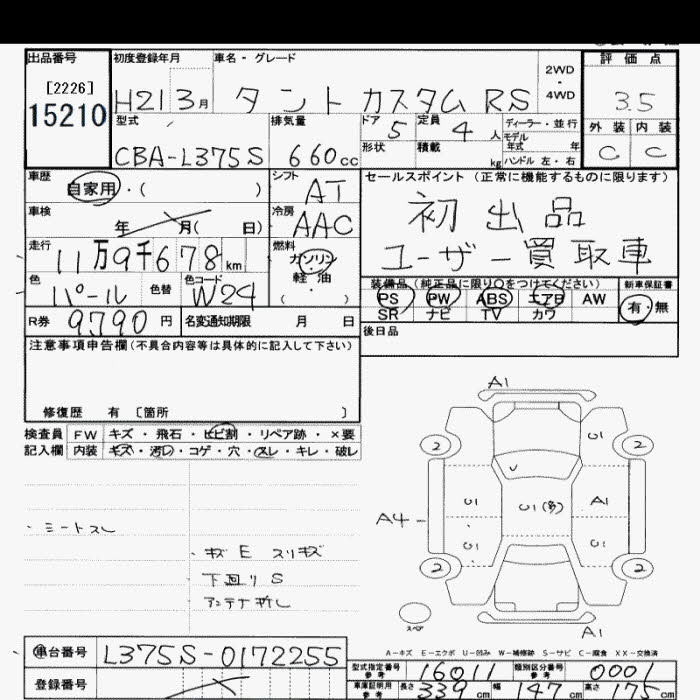 出品番号 初度登録年月 車名・グレード 評価点
[2226]
15210
H21 3月 タント カスタム RS 2WD・4WD 3.5
型式 排気量 ドア 定員 ディーラー・並行 外装 内装
CBA-L375S 660cc 5 4人 モデル年式 年 C C
形状 積載 kg ハンドル 左・右
車歴 シフト セールスポイント (正常に機能するものに限ります)
自家用・( ) AT 初出品
車検 冷房
年 月( 日) AAC
走行 燃料 ユーザー買取車
11万9千678km ガソリン・軽油
色 色替 色コード ( )
パール W24
装備品(純正品に限り○をつけてください) 新車保証書
PS PW ABS エアB AW 有・無
SR ナビ TV カワ
R券 9790円 名変通知期限 月 日 後日品
注意事項申告欄(不具合内容等は具体的に記入して下さい)
修復歴 有 [箇所 ]
検査員 FW キズ・飛石・ヒビ割・リペア跡・×要
記入欄 内装 キズ・汚レ・コゲ・穴・スレ・キレ・破レ
・シートスレ
・キズ E スリキズ
下回り S
アンテナ折レ
A1
2 U1 2
U1 U1(多) A1
A4
U1 U1
2 2
スペア
A1
A-キズ E-エクボ U-凹み W-補修跡 S-サビ C-腐食 XX-交換済
車台番号 L375S-0172255
型式指定番号 参考 16011 類別区分番号 参考 0001
登録番号
車庫証明用 参考 長さ 339cm 幅 147cm 高さ 175cm